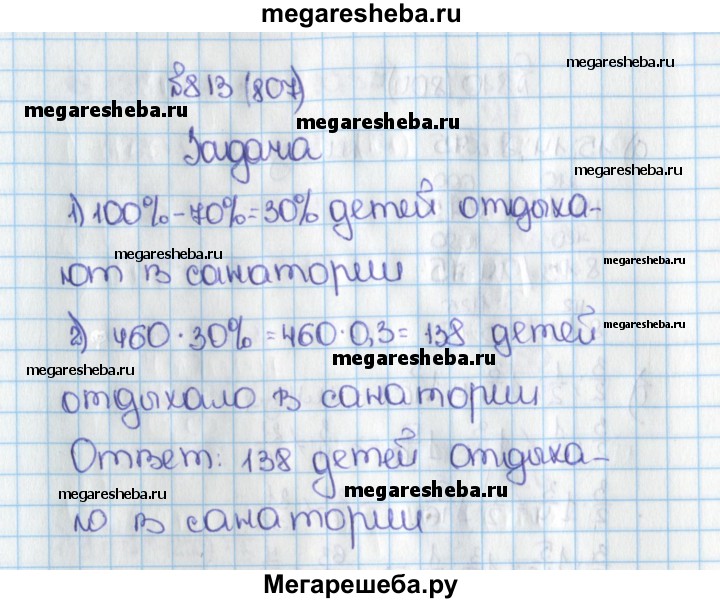 megaresheba.ru
№813 (807)
megaresheba.ru
megaresheba.ru
megaresheba.ru
Задача
megaresheba.ru
1) 100%-70%=30% детей отдыха-
megaresheba.ru
megaresheba.ru
ют в санатории
2) 460·30%=460·0,3=138 детей
megaresheba.ru
megaresheba.ru
megaresheba.ru
отдыхало в санатории
Ответ: 138 детей отдыха-
megaresheba.ru
megaresheba.ru
megaresheba.ru
ло в санатории
Мегарешеба.ру